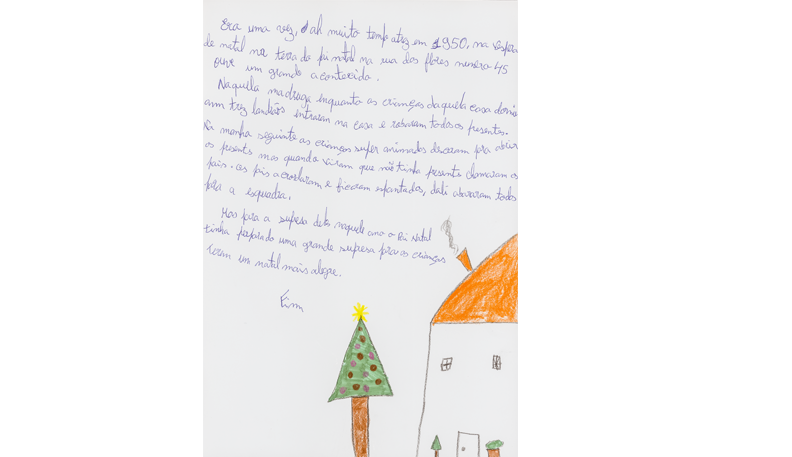 Era uma vez, dah muito temp atrez em 1950, na véspera
de natal na terra do pai natal na rua das flores numero 45
ouve um grande acontecido.
Naquela madruga enquanto as crianças daquela casa dormi
am trez landrãos entraram na casa e robaram todos os presentes.
Na manha seguinte as crianças super animadas desceram pra abrir
os presents mas quando viram que não tinha presente chamaram os
pais. os pais acordaram e ficaram espantados, dali abararam todos
para a esquadra.
Mas para a supresa deles naquele ano o Pai Natal
tinha preparado uma grande supresa para as crianças
terem um natal mais alegre.
Fim